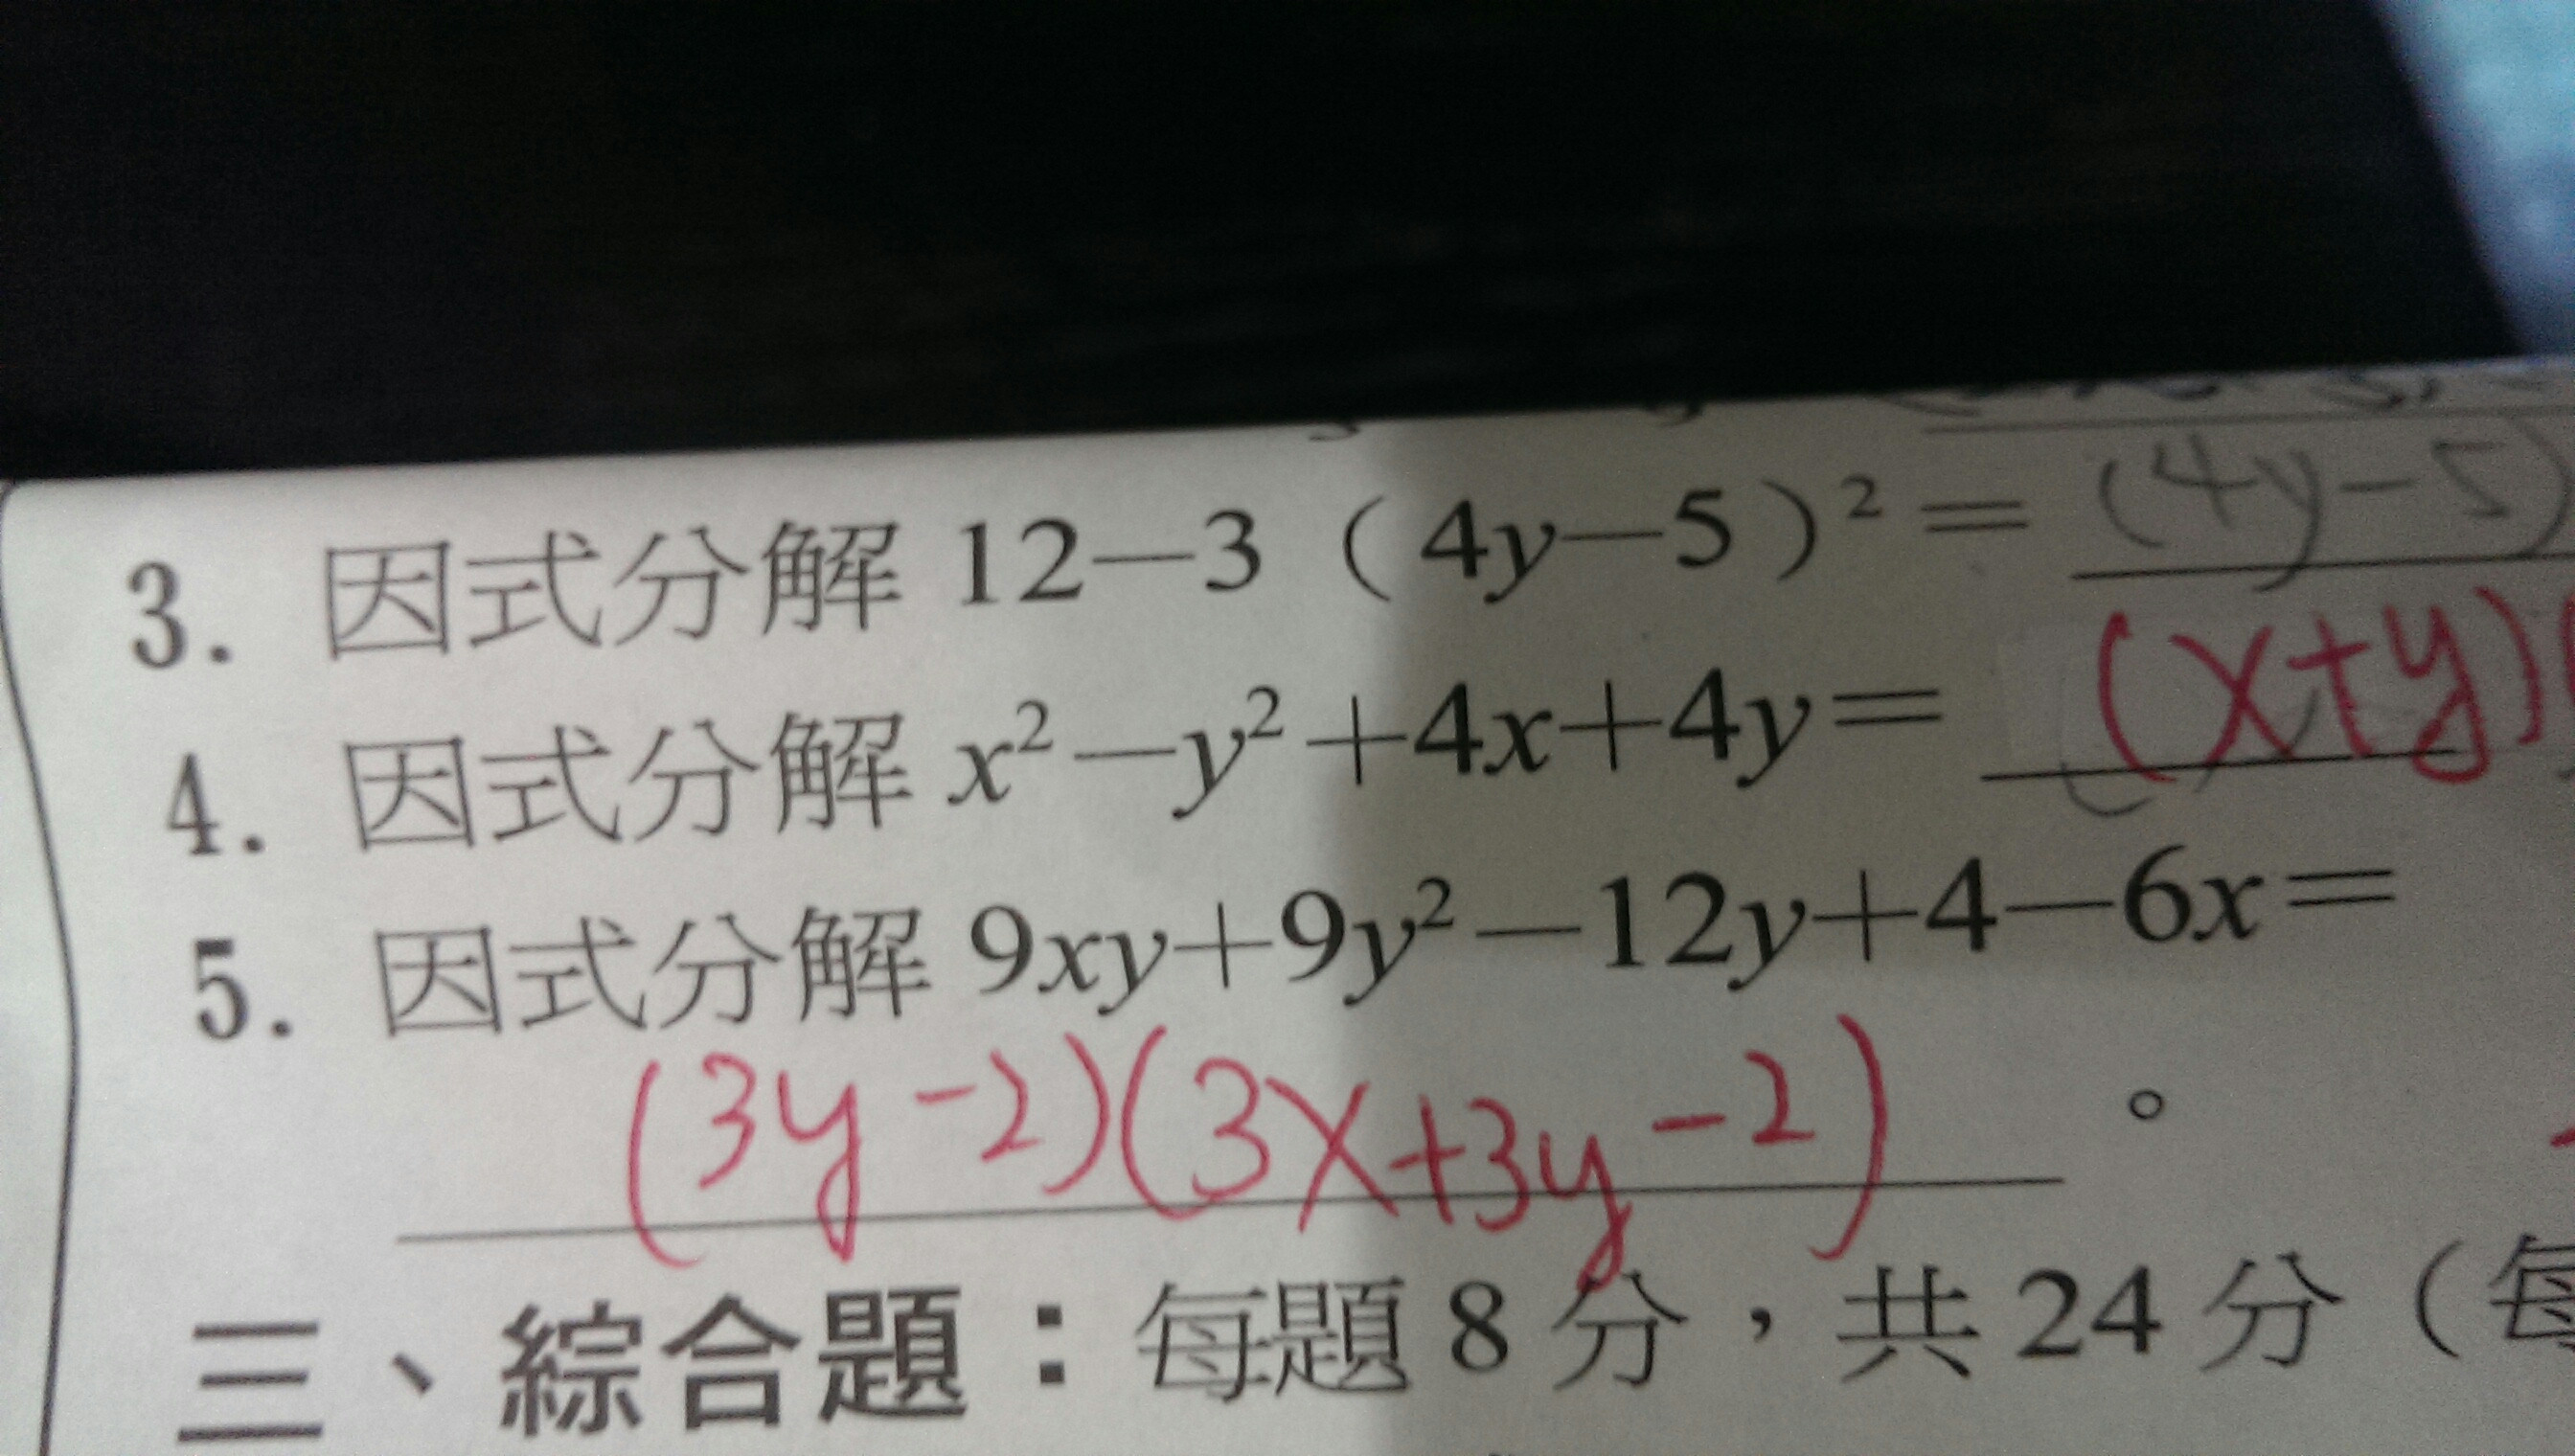 3. 因式分解 12－3（4y－5）²＝ (4y-5)
4. 因式分解 x²－y²＋4x＋4y＝ (x+y)(
5. 因式分解 9xy＋9y²－12y＋4－6x＝
(3y-2)(3x+3y-2) 。
三、綜合題：每題 8 分，共 24 分（每